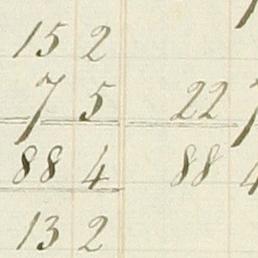 15 2
7 5 22 7
88 4 88 4
13 2